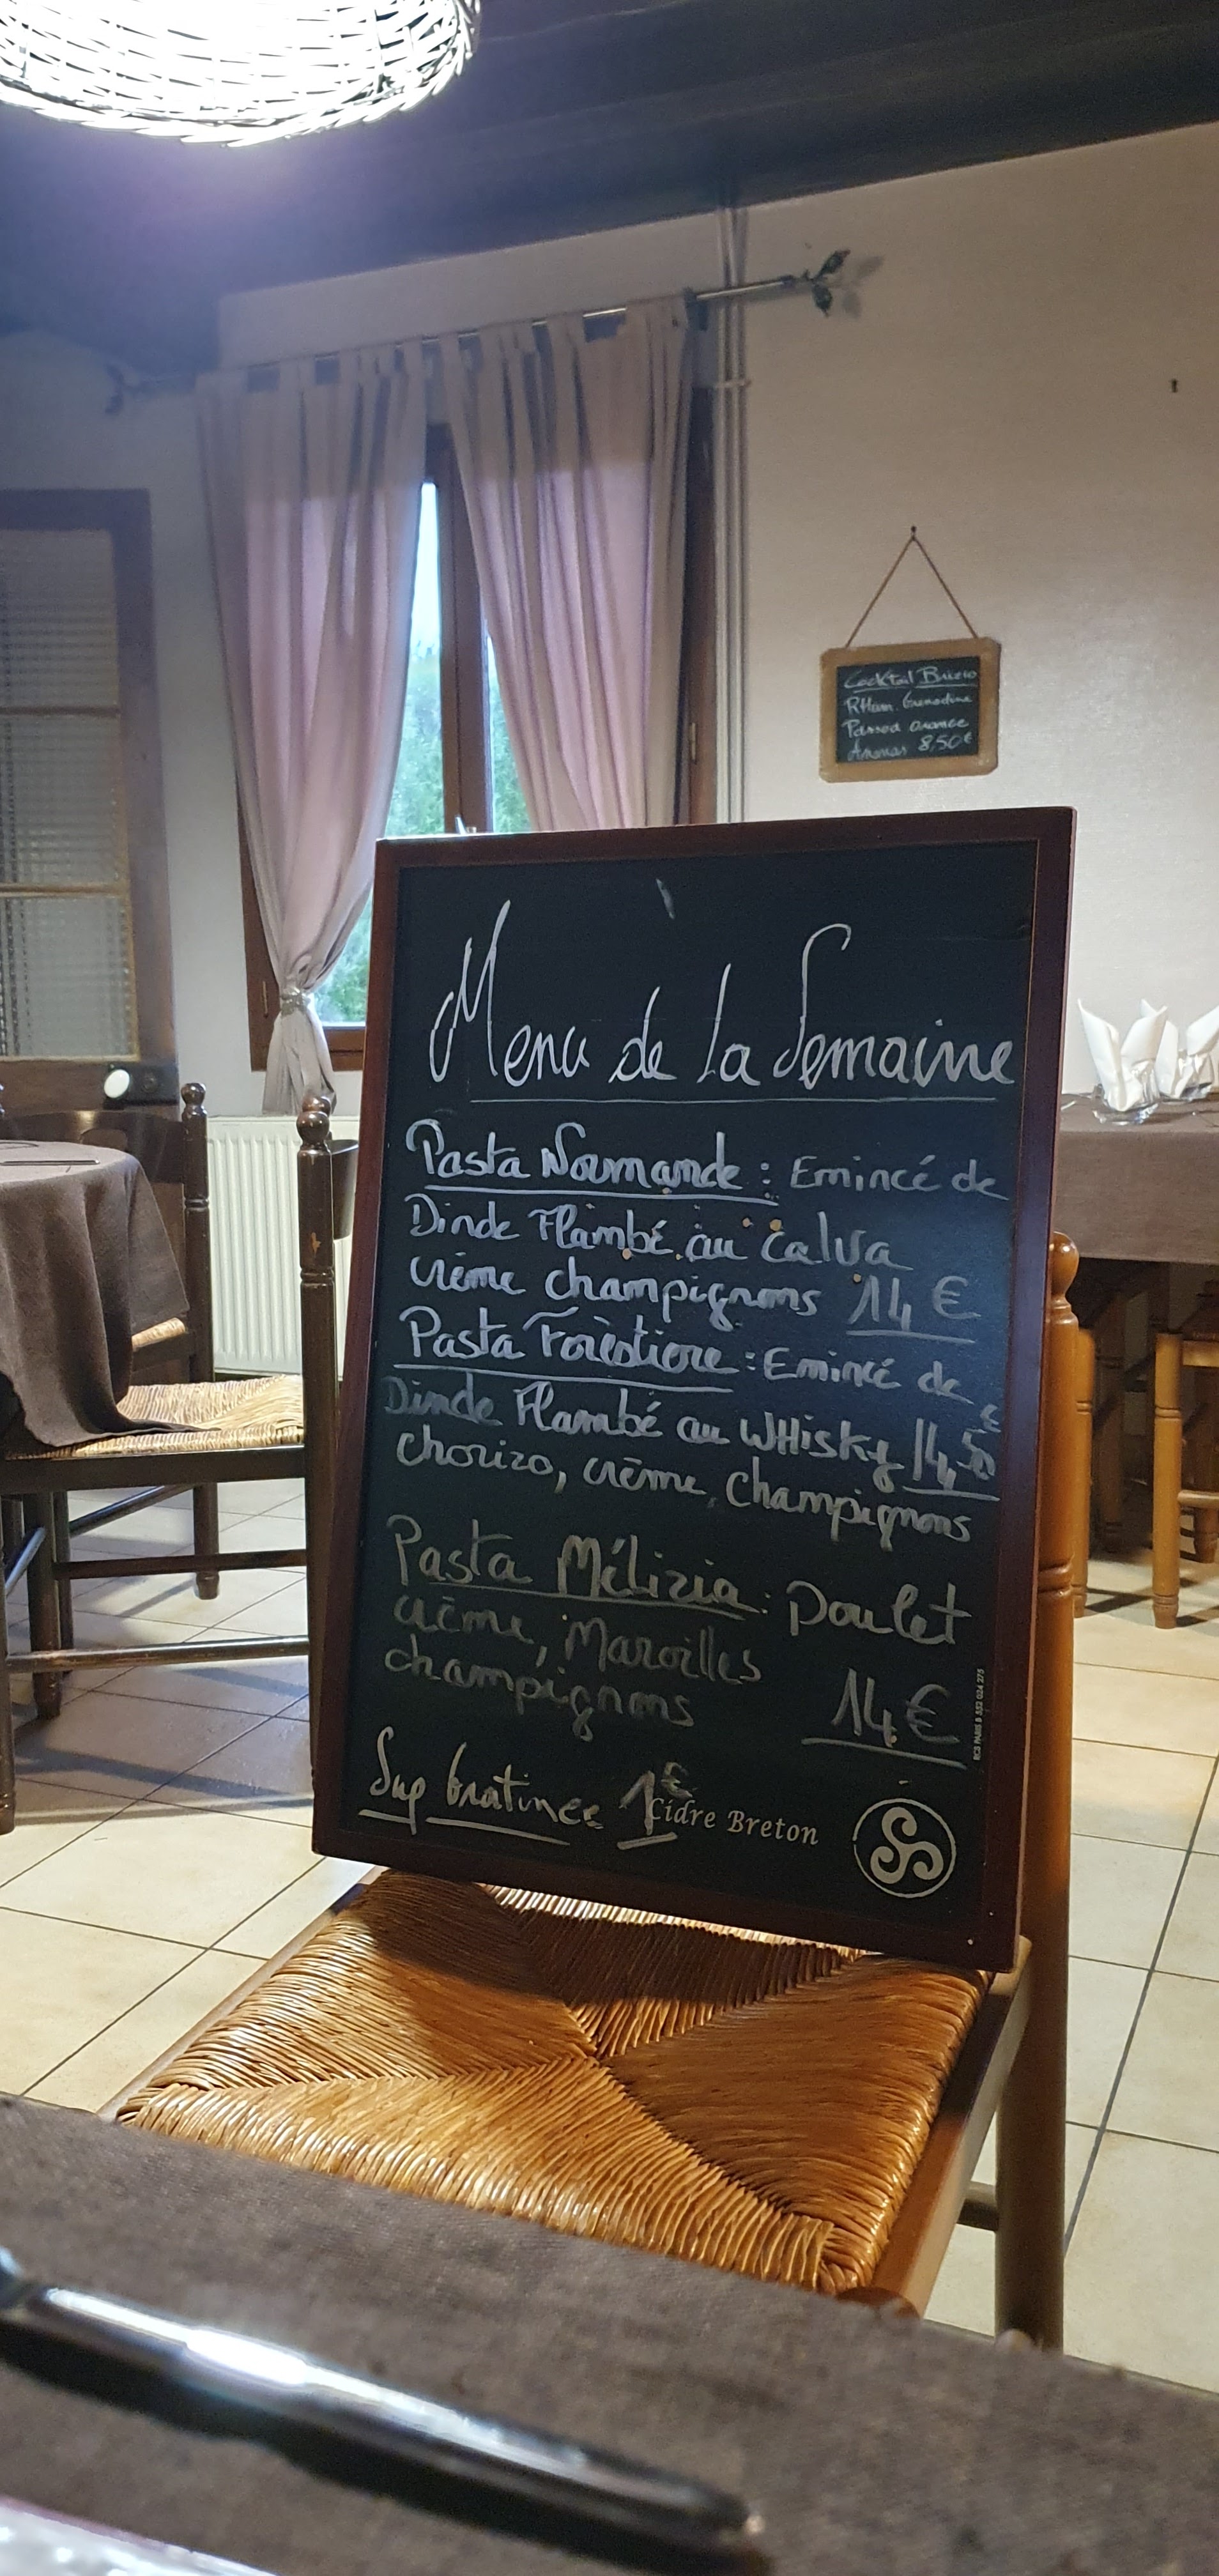 Cocktail Brizio
RHum. Grenadine
Passoa orange
Ananas 8,50€
Menu de la Semaine
Pasta Normande : Emincé de
Dinde Flambé au Calva
crème champignons 14 €
Pasta Forèstiere : Emincé de
Dinde Flambé au WHisky 14,50 €
chorizo, crème, champignons
Pasta Mélizia : Poulet
crème, Maroilles
champignons 14 €
Sup Gratinée 1€
Cidre Breton
RCS PARIS B 552 024 275